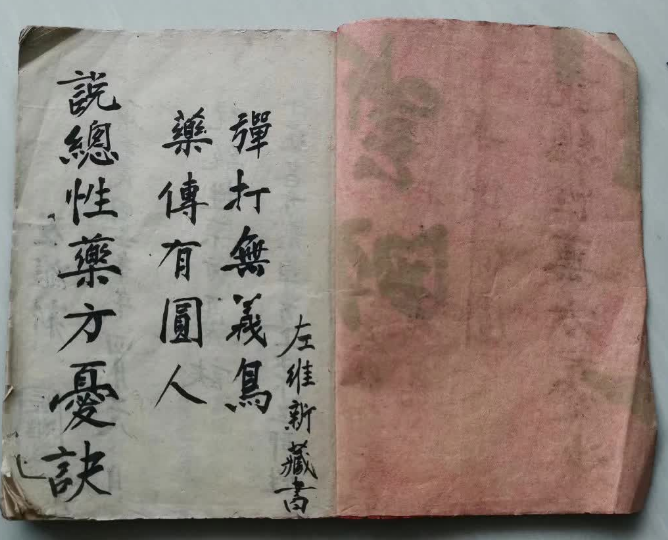 左維新藏書
彈打無義鳥
藥傳有圓人
説總性藥方憂訣